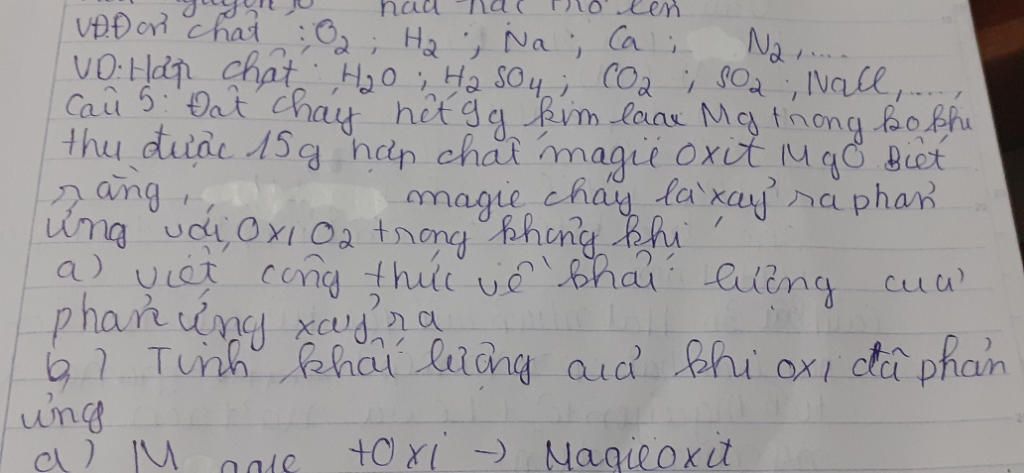 VD:Đơn chất : O2 ; H2 ; Na ; Ca ; N2,....
VD:Hợp chất : H2O ; H2SO4 ; CO2 ; SO2 ; NaCl,....,
Câu 5: Đốt cháy hết 9g kim loại Mg trong ko khí
thu được 15g hợp chất magiê oxit MgO Biết
rằng, magie cháy là xảy ra phản
ứng với, Oxi O2 trong không khí
a) viết công thức về khối lượng của
phản ứng xảy ra
b) Tính khối lượng của khí oxi đã phản
ứng
a) Magie + Oxi → Magieoxit